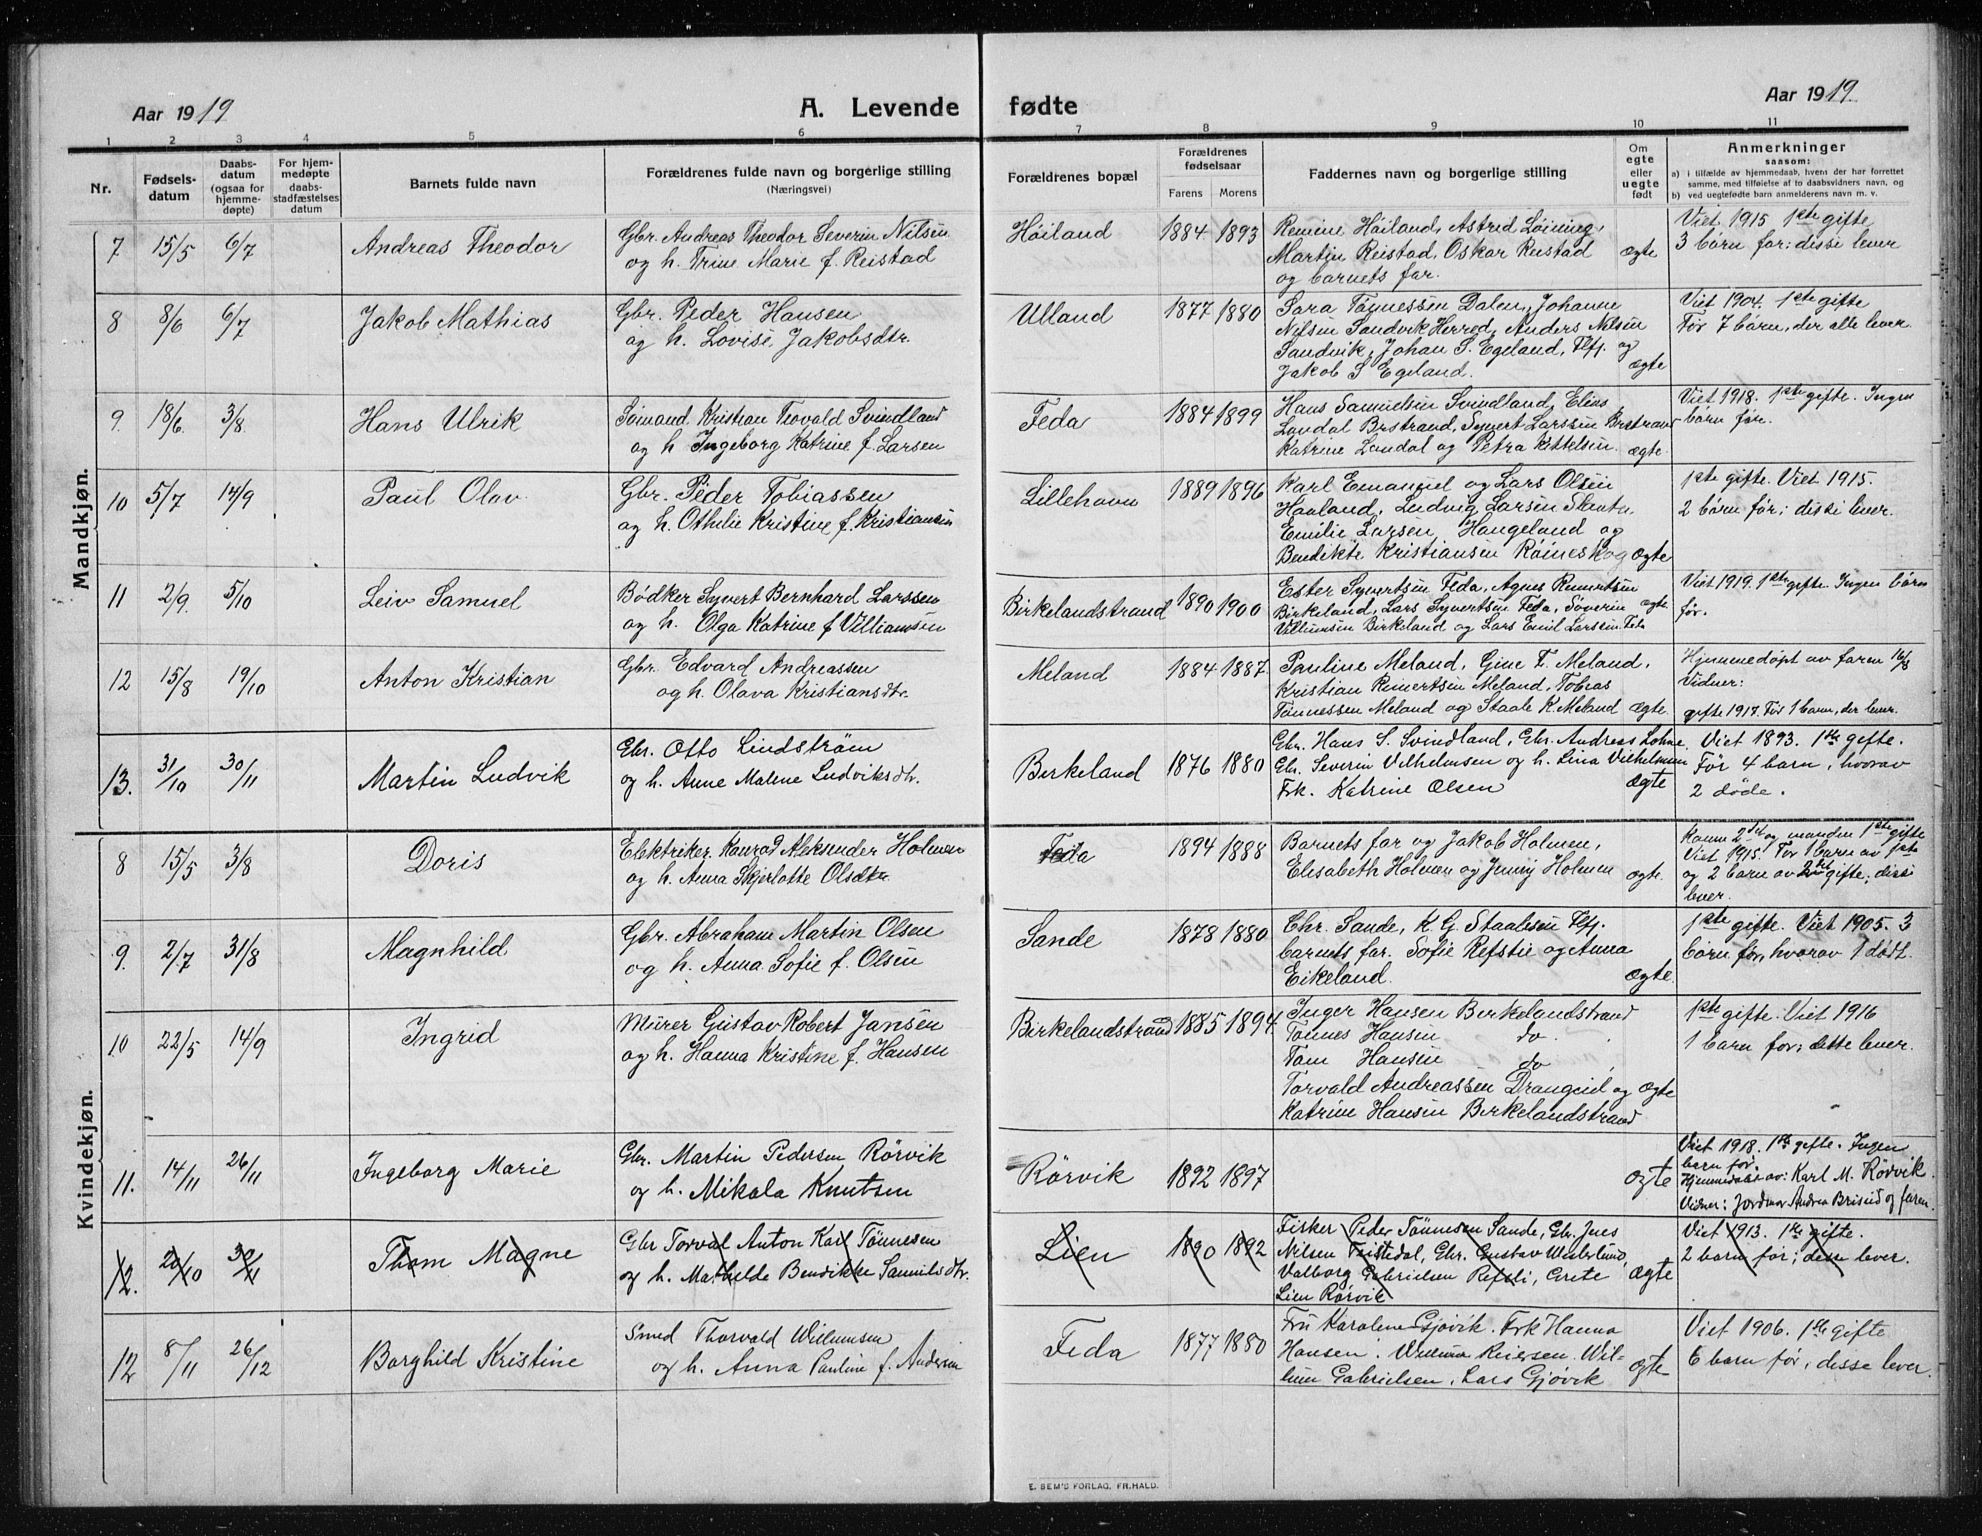 Aar 1919
A. Levende fødte
Aar 1919.
1 2 3 4 5 6 7 8 9 10 11
Nr.
Fødsels-
datum
Daabs-
datum
(ogsaa for
hjemme-
døpte)
For hjem-
medøpte
daabs-
stadfæstelses
datum
Barnets fulde navn
Forældrenes fulde navn og borgerlige stilling
(Næringsvei)
Forældrenes bopæl
Forældrenes
fødselsaar
Farens Morens
Faddernes navn og borgerlige stilling
Om
egte
eller
uegte
født
Anmerkninger
saasom:
a) i tilfælde av hjemmedaab, hvem der har forrettet
samme, med tilføielse af to daabsvidners navn, og
b) ved uegtefødte barn anmelderens navn m. v.
Mandkjøn.
7 15/5 6/7 Andreas Theodor
Gbr. Andreas Theodor Severin Nilsen
og h. Trine Marie f. Reistad
Høiland 1884 1893
Remine Høiland, Astrid
Martin Reistad, Oskar Reistad
og barnets far.
ægte
Viet 1915 1ste gifte
3 børn før: disse lever
8 8/6 6/7 Jakob Mathias
Gbr. Peder Hansen
og h. Lovise Jakobsdtr.
Ulland 1877 1880
Sara Tønnessen Dalen, Johanne
Nilsen Sandvik Herred, Anders Nilsen
Sandvik, Johan S. Egeland, Flfj. og
Jakob S Egeland.
ægte
Viet 1904. 1ste gifte
Før 7 børn, der alle lever.
9 18/6 3/8 Hans Ulrik
Sømand Kristian Torvald Svindland
og h Ingeborg Katrine f. Larsen
Feda 1884 1899
Hans Samuelsen Svindland, Elias
Londal Brstrand, Syvert Larssen Brstrand
Katrine Londal og Petra Kittelsen.
ægte.
Viet 1918. 1ste gifte. Ingen
børn før.
10 5/7 14/9 Paul Olav
Gbr. Peder Tobiassen
og h. Othilie Kristine f. Kristiansen
Lillehavn 1889 1896
Karl Emanuel og Lars Olsen
Haaland, Ludvig Larsen
Emilie Larsen, Haugeland og
Bendikte Kristiansen Røineskog
ægte
1ste gifte. Viet 1915.
2 børn før; disse lever.
11 2/9. 5/10 Leiv Samuel
Bødker Syvert Bernhard Larssen
og h. Olga Katrine f Villiamsen
Birkelandstrand 1890 1900
Ester Syvertsen Feda, Agnes Reinertsen
Birkeland, Lars Syvertsen Feda, Søverin
Villumsen Birkeland og Lars Emil Larssen Feda
ægte
Viet 1919. 1ste gifte. Ingen børn
før.
12 15/8 19/10 Anton Kristian
Gbr. Edvard Andreassen
og h. Olava Kristiansdtr.
Meland 1884 1887.
Pauline Meland, Gine T. Meland,
Kristian Reinertsen Meland, Tobias
Tønnessen Meland og Staale K. Meland
ægte.
Hjemmedøpt av faren 16/8
Vidner:
gifte 1917. Før 1 barn, der lever.
13. 31/10 30/11 Martin Ludvik
Gbr. Otto Lindstrøm
og h. Anne Malene Ludviksdtr.
Birkeland 1876 1880
Gbr. Hans S. Svindland, Gbr. Andreas Lohne,
Gbr. Severin Vilhelmsen og h. Lina Vilhelmsen
Frk. Katrine Olsen
ægte
Viet 1893. 1ste gifte.
Før 4 barn, hvorav
2 døde.
Kvindekjøn.
8 15/5 3/8 Doris
Elektriker Konrad Aleksander Holmen
og h. Anna Skjerlotte Olsdtr
Feda 1894 1888
Barnets far og Jakob Holmen,
Elisabeth Holmen og Jenny Holmen
ægte.
Konen 2det og manden 1ste gifte
Viet 1915. Før 1 barn av 1ste
og 2 barn av 2det gifte; disse
lever.
9. 2/7 31/8 Magnhild
Gbr. Abraham Martin Olsen
og h. Anna Sofie f. Olsen
Sande 1878 1880
Chr. Sande, K. G. Staalesen Flfj.
barnets far. Sofie Refstie og Anna
Eikeland.
ægte.
1ste gifte. Viet 1905. 3
børn før, hvorav 1 dødt.
10 22/5 14/9 Ingrid
Murer Gustav Robert Jansen
og h. Hanna Kristine f. Hansen
Birkelandstrand 1885 1894.
Inger Hansen Birkelandstrand
Tønnes Hansen do.
Tom Hansen do
Torvald Andreassen Drangeid og
Katrine Hansen Birkelandstrand
ægte
1ste gifte. Viet 1916
1 barn før; dette lever.
11. 14/11 26/11 Ingeborg Marie
Gbr. Martin Pedersen Rørvik
og h. Mikala Knutsen
Rørvik 1892 1897
ægte
Viet 1918. 1ste gifte. Ingen
barn før.
Hjemmedøbt av: Karl M. Rørvik.
Vidner: Jordmor Andrea Briseid og faren.
12. 20/10 30/11 Thom Magne
Gbr Torval Anton Karl Tønnesen
og h. Mathilde Bendikke Samuelsdtr.
Lien 1890 1892
Fisker Peder Tønnesen Sande, Gbr. Jens
Nilsen Tristedal, Gbr. Gustav Westerlund,
Valborg Gabrielsen Refsti, Grete
Lien Rørvik
ægte
Viet 1913. 1ste gifte.
2 barn før; disse lever.
12 8/11 26/12 Borghild Kristine
Smed Thorvald Willumsen
og h. Anna Pauline f. Andersen
Feda 1877 1880
Fru Karoline Gjøvik. Frk Hanna
Hansen. Wilhelmine Reiersen. Wil-
lum Gabrielsen. Lars Gjøvik
ægte
Viet 1906. 1ste gifte
6 barn før, disse lever.
E. SEM'S FORLAG, FR.HALD.